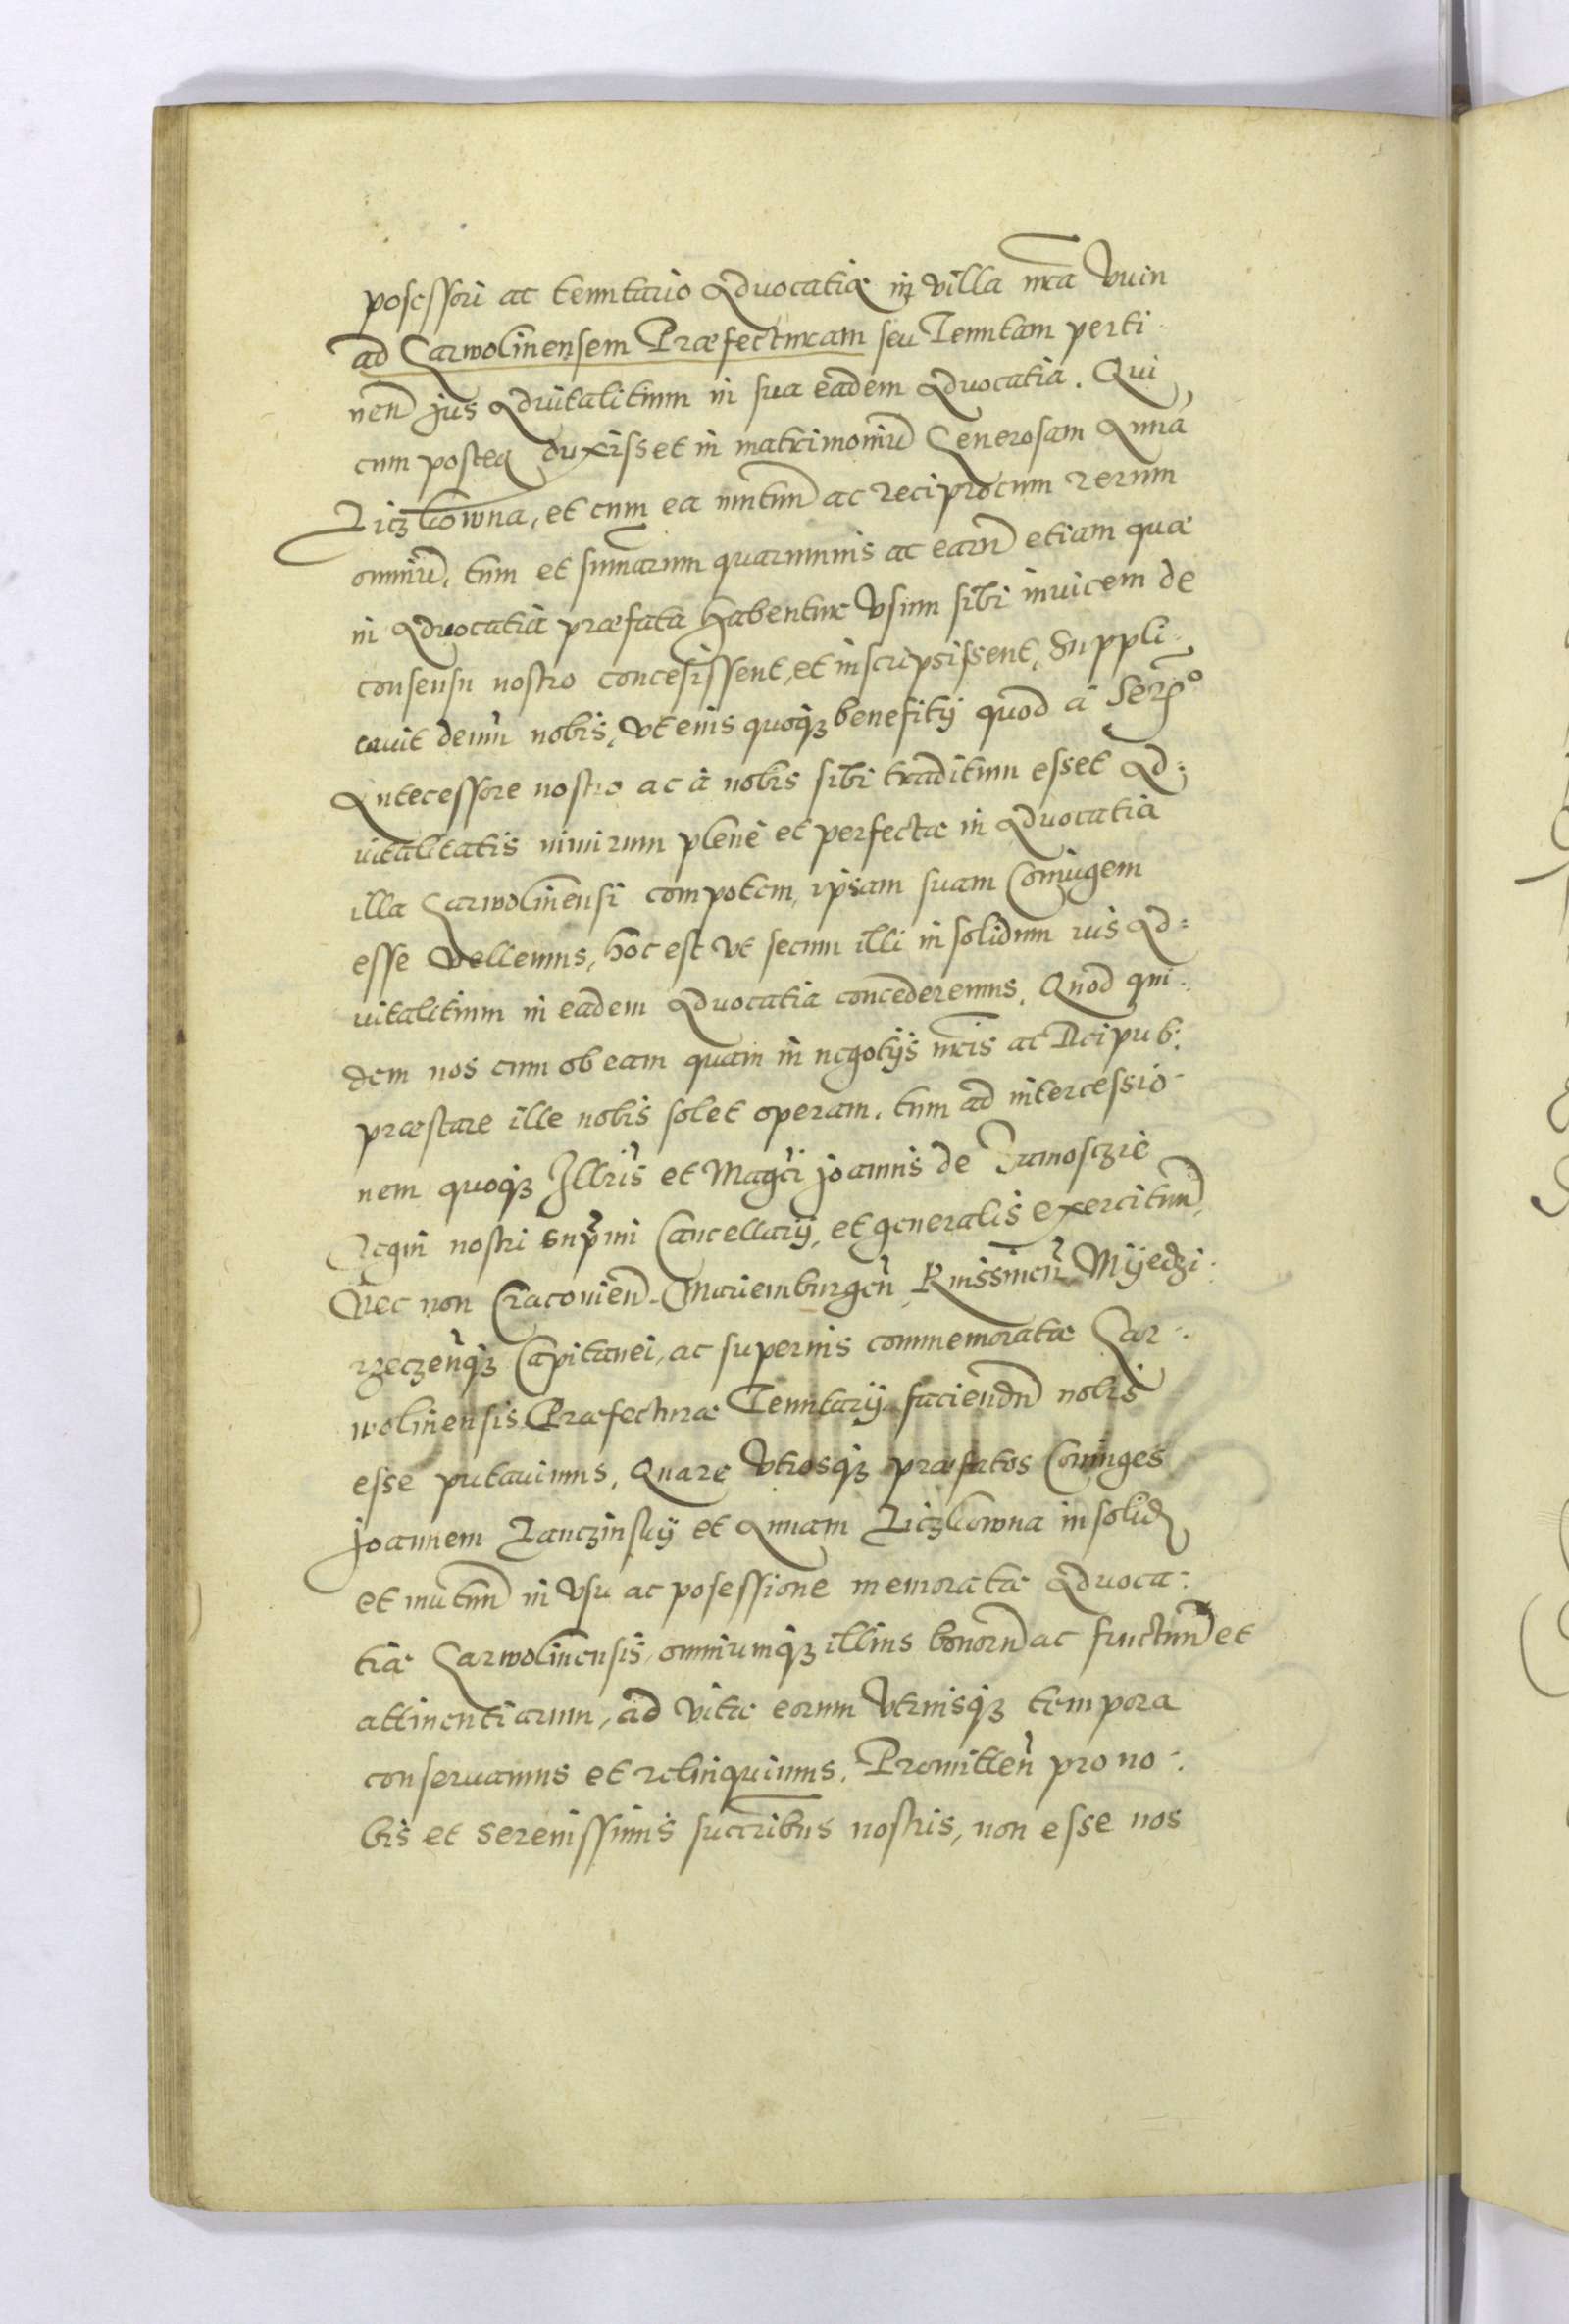 posessori ac tenutario Advocatiæ in villa nrã Vuin
ad Garwolinensem Præfecturam seu Tenutam perti
nen̄ jus Aduitalitium in sua eadem Advocatia. Qui
cum postea duxisset in matrimoniū Generosam Annā
Liczkowna, et cum ea mutuū ac reciprocum rerum
omniū, tum et sum̄arum quarumuis ac earū etiam quæ
in Advocatia præfata habentur Vsum sibi inuicem de
consensu nostro concesissent, et inscripsissent, Suppli-
cauit demū nobis, vt eius quoqȝ benefitij quod à Sermo
Antecessore nostro ac à nobis sibi traditum esset Ad:
uitalitatis nimirum plenè et perfectæ in Advocatia
illa Garwolinensi compotem, ipsam suam Coniugem
esse Vellemus, hoc est vt secum illi in solidum ius Ad=
uitalitium in eadem Advocatia concederemus, Quod qui:
dem nos cum ob eam quam in negotijs nrīs ac Reipub:
præstare ille nobis solet operam, tum ad intercessio-
nem quoqȝ Illris et Magci Joannis de Zamosczie
Regni nostri Supmi Cancellarij, et generalis exercituū,
Nec non Cracouien̄ Mariemburgen̄ Knissinen̄ Mijedzi:
rzeczen̄qȝ Capitanei, ac superius commemoratæ Gar-:
wolinensis Præfecturæ Tenutarij faciendū nobis
esse putauimus, Quare Vtrosqȝ præfatos Coniuges
Joannem Lanczinskij et Annam Liczkowna in solid
et mutuū in Vsu ac posessione memoratæ Advoca:
tiæ Garwolinensis, omniumqȝ illius bonorū ac fructuū et
attinentiarum, ad vitæ eorum Vtriusqȝ tempora
conseruamus et relinquimus. Promitten̄ pro no-:
bis et Serenissimis succribus nostris, non esse nos